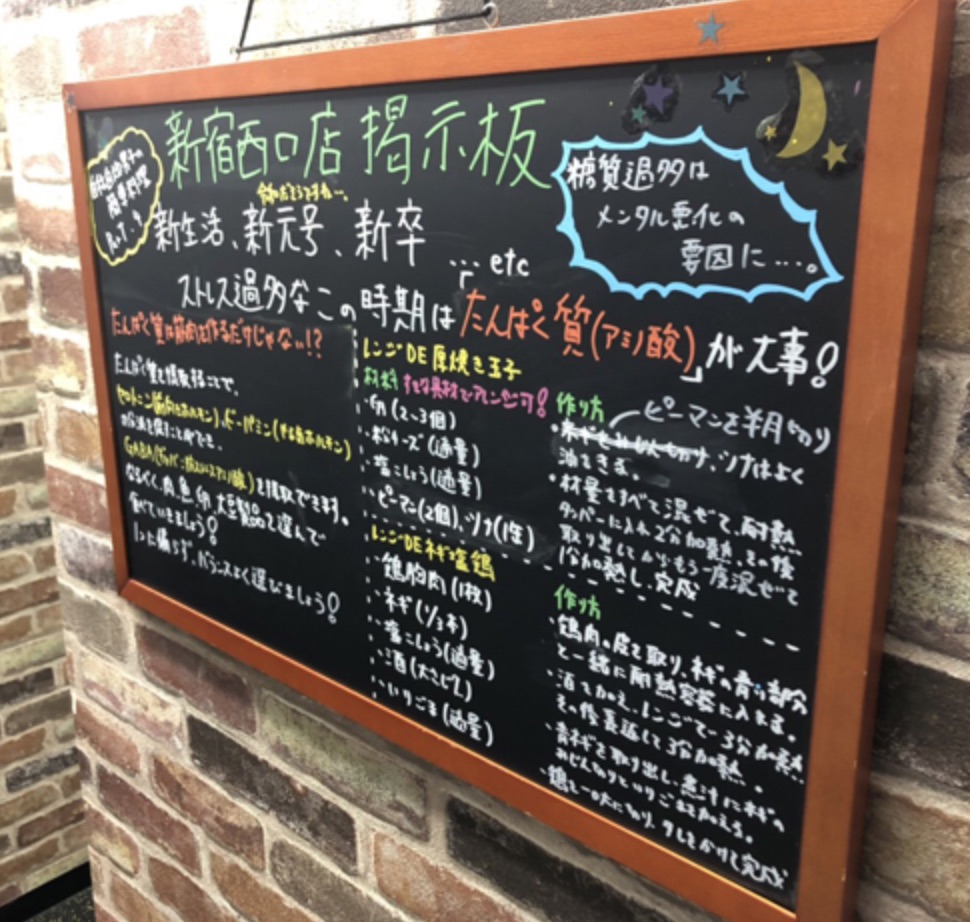 新宿西口店 掲示板
簡単料理
新生活、新元号、新卒 … etc
糖質過多は
メンタル悪化の
要因に…。
ストレス過多なこの時期は「たんぱく質(アミノ酸)」が大事!
たんぱく質は筋肉を作るだけじゃない!?
たんぱく質を摂取することで、
セロトニン(前向きホルモン)、ドーパミン(やる気ホルモン)
の分泌を促すことができ、
GABA
を摂取できます。
なるべく、肉、魚、卵、大豆製品を選んで
食べていきましょう!
に偏らず、バランスよく選びましょう!
レンジDE厚焼き玉子
材料 すきな具材でアレンジ可!
・卵(2〜3個)
・粉チーズ(適量)
・塩こしょう(適量)
・ピーマン(2個)、ツナ(1缶)
レンジDEネギ塩鶏
・鶏胸肉(1枚)
・ネギ(1/3本)
・塩こしょう(適量)
・酒(大さじ2)
・いりごま(適量)
作り方
ピーマンを半月切り
・ツナはよく
油をきる。
・材量をすべて混ぜて、耐熱
タッパーに入れ2分加熱、その後
取り出してからもう一度混ぜて
1分加熱し、完成
作り方
・鶏肉の皮を取り、ネギの青い部分
と一緒に耐熱容器に入れる。
・酒を加え、レンジで3分加熱
その後裏返して3分加熱。
・青ネギを取り出し、煮汁にネギの
みじん切りといりごまを加える。
・鶏を一口大に切り、タレをかけて完成